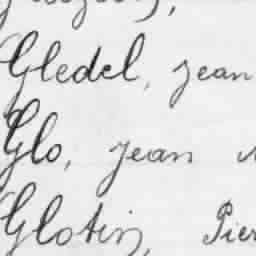 Gledel, jean
Glo, jean
Glotin, Pier